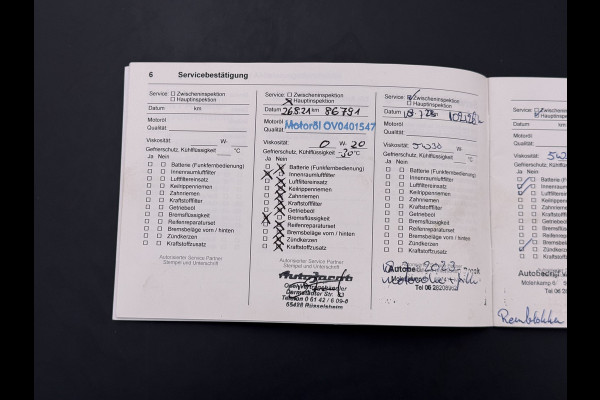 6 Servicebestätigung
Service: Zwischeninspektion
Hauptinspektion
Datum km
Motoröl
Qualität:
Viskosität: W-
Gefrierschutz, Kühlflüssigkeit °C
Ja Nein
Batterie (Funkfernbedienung)
Innenraumluftfilter
Luftfiltereinsatz
Keilrippenriemen
Zahnriemen
Kraftstofffilter
Getriebeöl
Bremsflüssigkeit
Reifenreparaturset
Bremsbeläge vorn / hinten
Zündkerzen
Kraftstoffzusatz
Autorisierter Service Partner
Stempel und Unterschrift
Service: Zwischeninspektion
Hauptinspektion
Datum 26.8.21 km 86791
Motoröl
Qualität: Motoröl OV0401547
Viskosität: 0 W- 20
Gefrierschutz, Kühlflüssigkeit -30 °C
Ja Nein
Batterie (Funkfernbedienung)
Innenraumluftfilter
Luftfiltereinsatz
Keilrippenriemen
Zahnriemen
Kraftstofffilter
Getriebeöl
Bremsflüssigkeit
Reifenreparaturset
Bremsbeläge vorn / hinten
Zündkerzen
Kraftstoffzusatz
Autorisierter Service Partner
Stempel und Unterschrift
Auto Jacob
Darmstädter Str.
Telefon 0 61 42 / 6 09-0
65428 Rüsselsheim
Service: Zwischeninspektion
Hauptinspektion
Datum km
Motoröl
Qualität:
Viskosität: 5W30 W-
Gefrierschutz, Kühlflüssigkeit °C
Ja Nein
Batterie (Funkfernbedienung)
Innenraumluftfilter
Luftfiltereinsatz
Keilrippenriemen
Zahnriemen
Kraftstofffilter
Getriebeöl
Bremsflüssigkeit
Reifenreparaturset
Bremsbeläge vorn / hinten
Zündkerzen
Kraftstoffzusatz
Autobedrijf
Tel 06 28208902
Service: Zwischeninspektion
Hauptinspektion
Datum
Motoröl
Qualität:
Viskosität: 5W
Gefrierschutz, Kühlflüssigkeit
Ja Nein
Batterie
Autobedrijf
Molenkamp 6
Tel 06